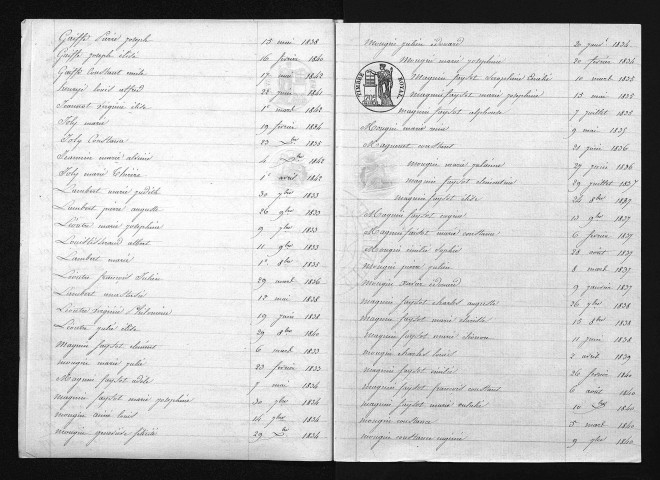 Gaiffe Pierre joseph 15 mai 1838
Gaiffe joseph élisé 16 février 1840
Gaiffe Constant emile 17 mai 1842
louis alfred 22 juin 1841
Jeannot Virginie élise 1er mart 1842
Joly marie 19 février 1834
Joly Constance 23 Xbre 1835
Jeannin marie 4 Xbre 1842
Joly marie 1er avril 1842
Lambert marie judith 30 7bre 1833
Lambert pierre auguste 26 9bre 1833
Lécutre marie joséphine 9 7bre 1833
albert 11 9bre 1833
Lambert marie 1er 8bre 1835
Lécutre françois Julien 29 mart 1836
Lambert 12 mai 1838
Lécutre virginie Philomène 19 juin 1838
Lécutre julie élise 29 8bre 1840
Magnin fayslot clément 6 mart 1833
mougin marie julie 23 février 1833
Magnin fayslot adèle 7 mai 1834
magnin fayslot marie joséphine 30 9bre 1834
mougin anne louis 14 9bre 1834
mougin geneviève 29 Xbre 1834
Mougin julien édouard 20 janv. 1834
Mougin marie joséphine 20 février 1834
TIMBRE ROYAL
Magnin fayslot Séraphine 10 mart 1835
Magnin fayslot marie joséphine 13 mai 1835
magnin fayslot alphonse 7 juillet 1835
Mougin marie 9 mai 1835
Maguenet constant 21 juin 1836
mougin marie 27 juin 1836
magnin fayslot clémentine 29 juillet 1837
magnin fayslot élise 24 8bre 1837
Magnin fayslot eugène 13 9bre 1837
Magnin fayslot marie constance 6 février 1837
Mougin emilie Sophie 28 août 1837
mougin pierre julien 8 mart 1837
mougin xavier édouard 9 janvier 1837
magnin fayslot charles auguste 26 9bre 1838
magnin fayslot marie 15 8bre 1838
magnin fayslot marie 11 juin 1838
mougin charles louis 2 avril 1839
magnin fayslot emilie 26 février 1840
magnin fayslot françois constant 6 août 1840
magnin fayslot marie 10 Xbre 1840
mougin constance 5 mart 1840
mougin constance eugénie 9 9bre 1840